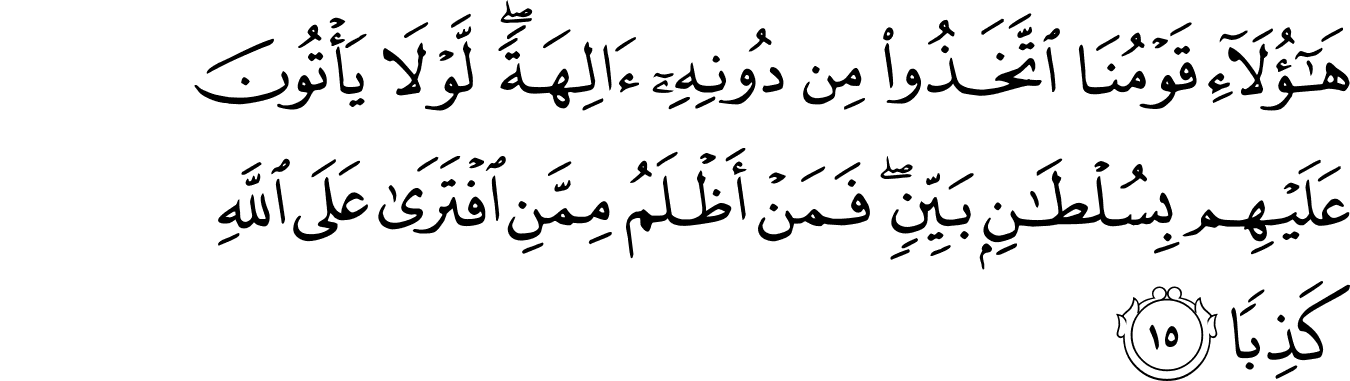 هَـٰٓؤُلَآءِ قَوْمُنَا ٱتَّخَذُوا۟ مِن دُونِهِۦٓ ءَالِهَةً ۖ لَّوْلَا يَأْتُونَ
عَلَيْهِم بِسُلْطَـٰنٍۭ بَيِّنٍ ۖ فَمَنْ أَظْلَمُ مِمَّنِ ٱفْتَرَىٰ عَلَى ٱللَّهِ
كَذِبًا ١٥